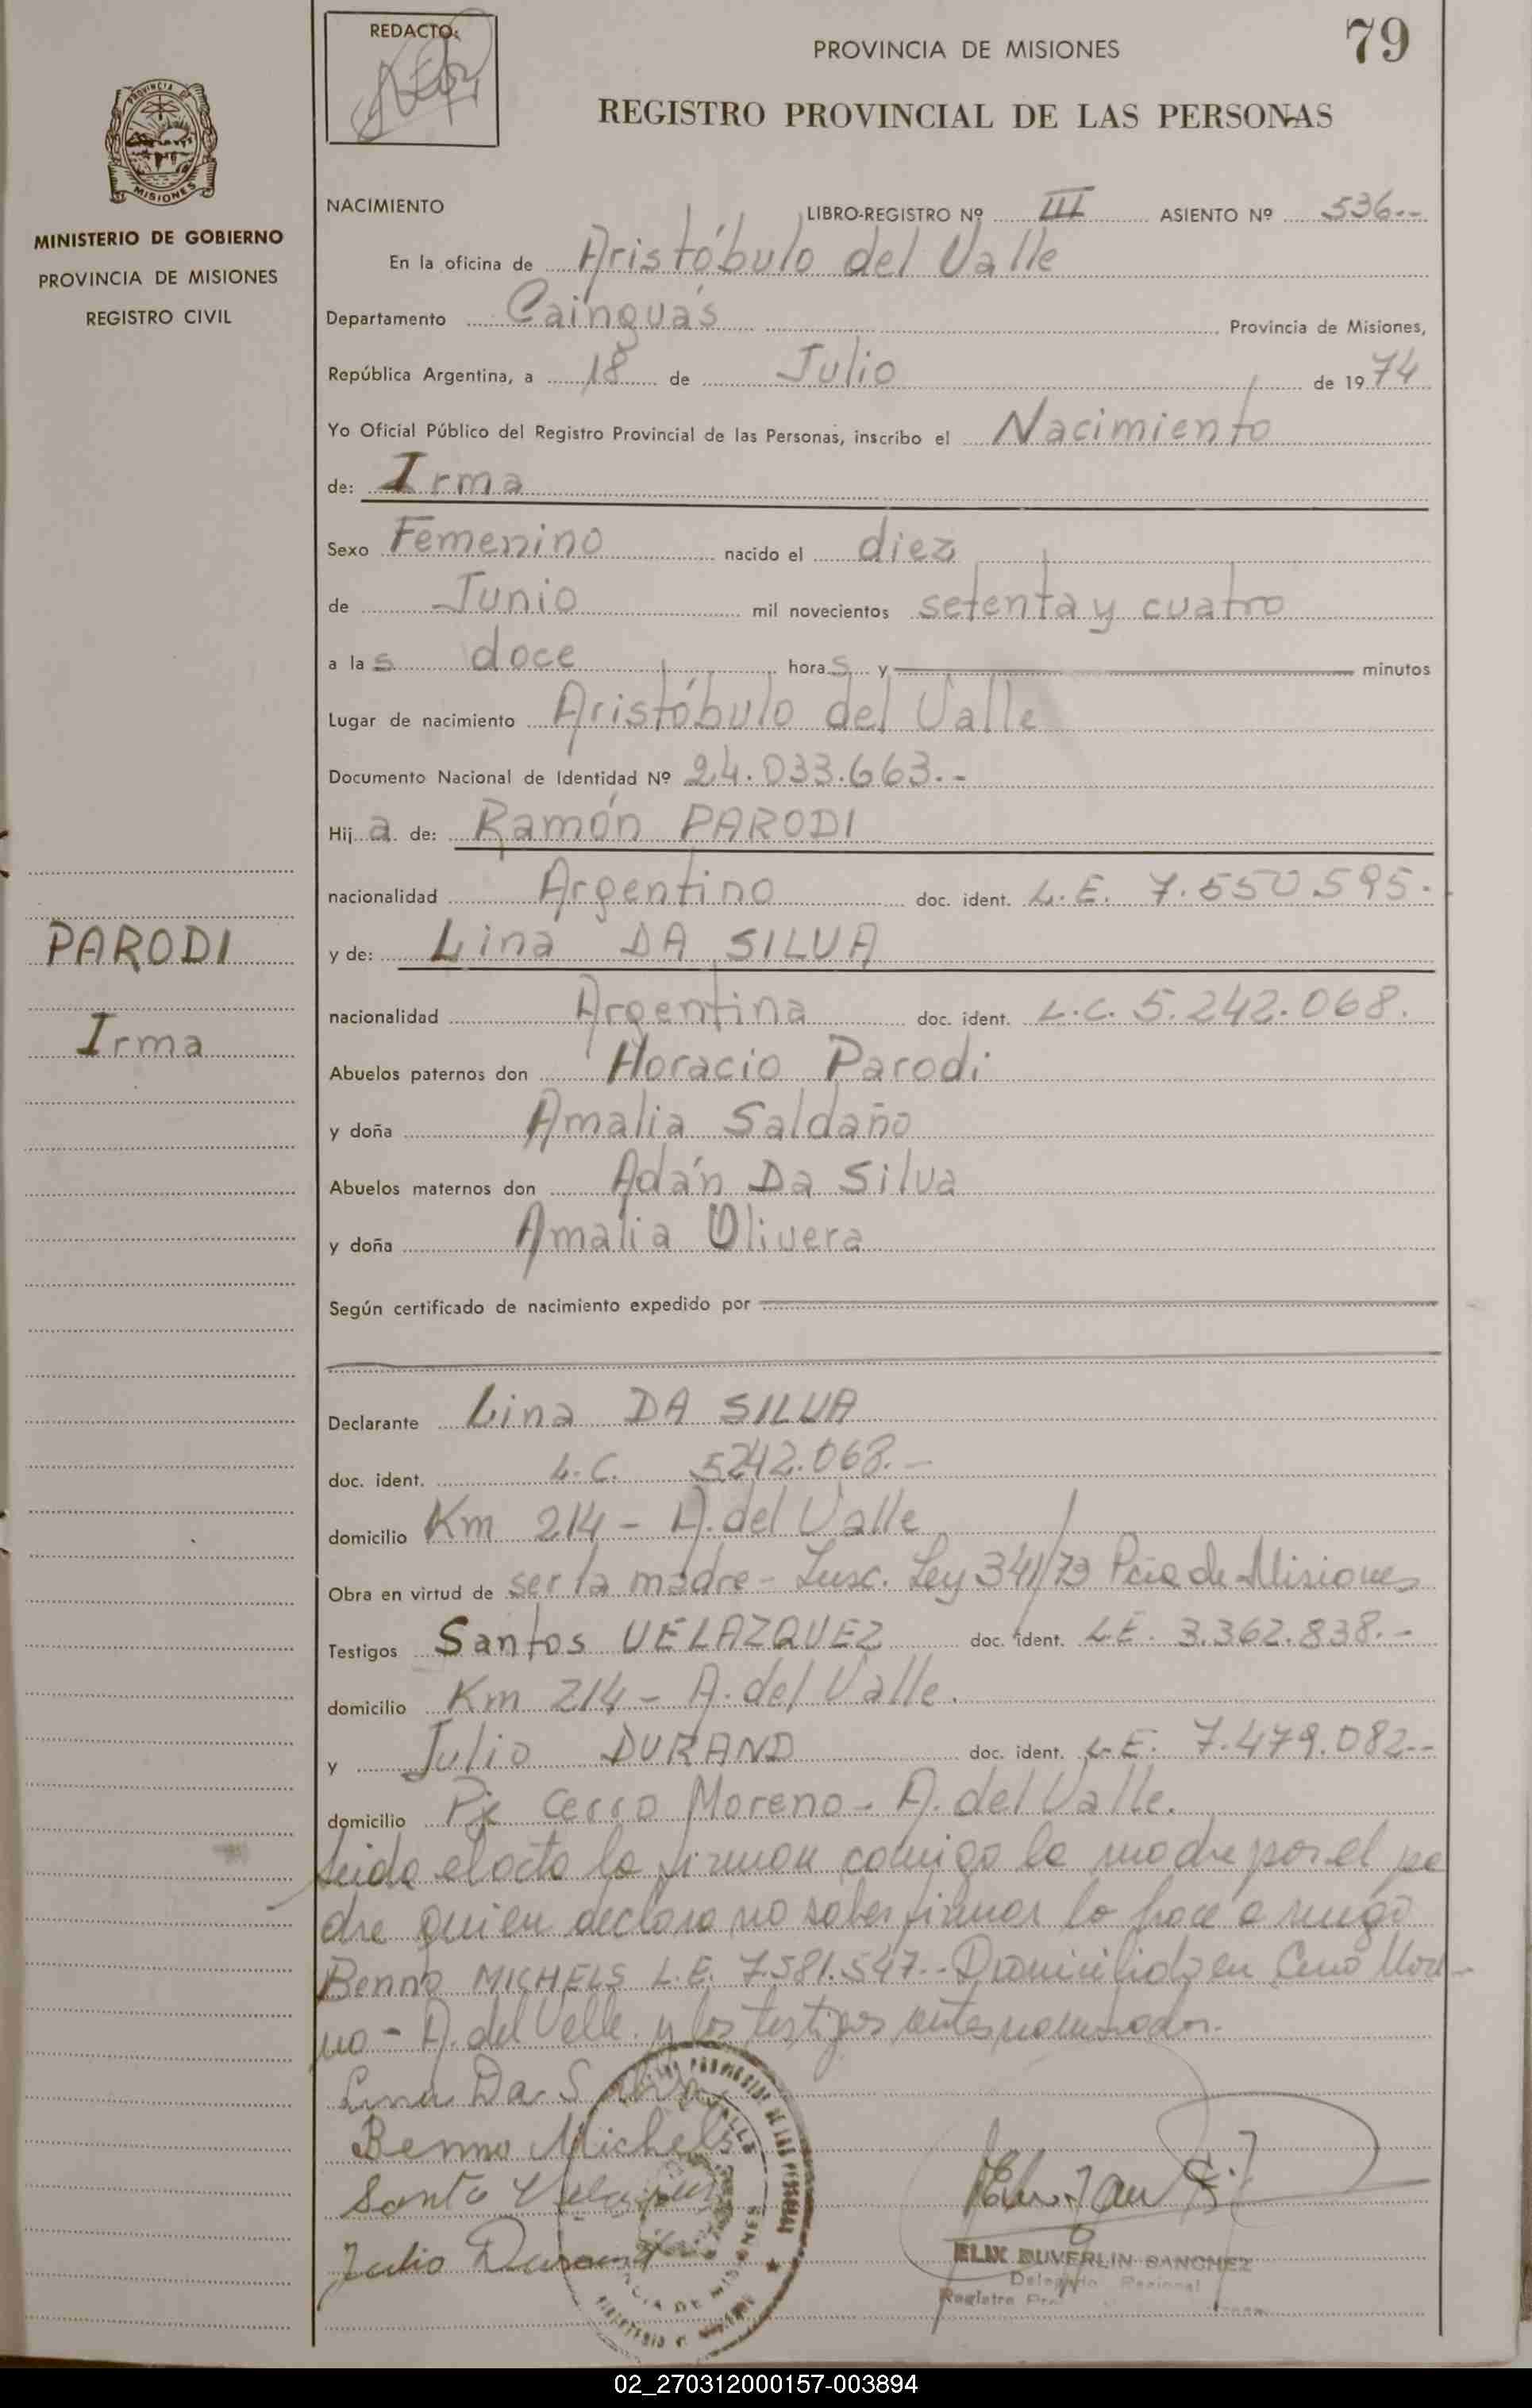 REDACTO:
PROVINCIA DE MISIONES
79
REGISTRO PROVINCIAL DE LAS PERSONAS
MISIONES
MINISTERIO DE GOBIERNO
PROVINCIA DE MISIONES
REGISTRO CIVIL
NACIMIENTO
LIBRO-REGISTRO Nº III ASIENTO Nº 536.--
En la oficina de Aristóbulo del Valle
Departamento Cainguás Provincia de Misiones,
República Argentina, a 18 de Julio de 1974
Yo Oficial Público del Registro Provincial de las Personas, inscribo el Nacimiento
de: Irma
Sexo Femenino nacido el diez
de Junio mil novecientos setenta y cuatro
a las doce horas y minutos
Lugar de nacimiento Aristóbulo del Valle
Documento Nacional de Identidad Nº 24.033.663.-
Hija de: Ramón PARODI
nacionalidad Argentino doc. ident. L.E. 7.550.595.
y de: Lina DA SILVA
nacionalidad Argentina doc. ident. L.C. 5.242.068.
PARODI
Irma
Abuelos paternos don Horacio Parodi
y doña Amalia Saldaño
Abuelos maternos don Adán Da Silva
y doña Amalia Olivera
Según certificado de nacimiento expedido por
Declarante Lina DA SILVA
doc. ident. L.C. 5242.068.-
domicilio Km 214 - A. del Valle
Obra en virtud de ser la madre - Insc. Ley 341/73 Pcia de Misiones
Testigos Santos VELAZQUEZ doc. ident. L.E. 3.362.838.-
domicilio Km 214 - A. del Valle.
y Julio DURAND doc. ident. L.E. 7.479.082--
domicilio Pje Cerro Moreno - A. del Valle.
Leida el acta la firman conmigo la madre por el pa
dre quien declara no saber firmar lo hace a ruego
Benno MICHELS L.E. 7.581.547.- Domiciliado en Cerro More-
no - A. del Valle. y los testigos antes nombrados.
Lina Da Silva
Benno Michels
Santo Velazquez
Julio Durand
ELIX DUVERLIN SANCHEZ
Delegado Regional
Registro
02_270312000157-003894